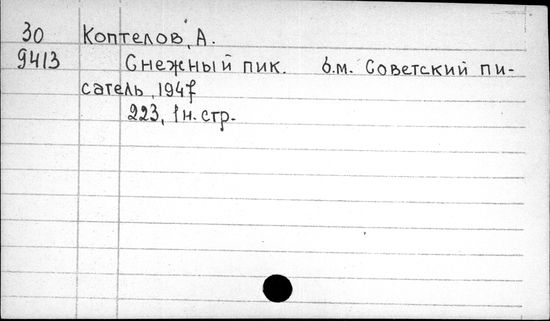 30 Коптелов, А.
9413 Снежный пик. б.м. Советский пи-
сатель, 1947
223, 1 н. стр.